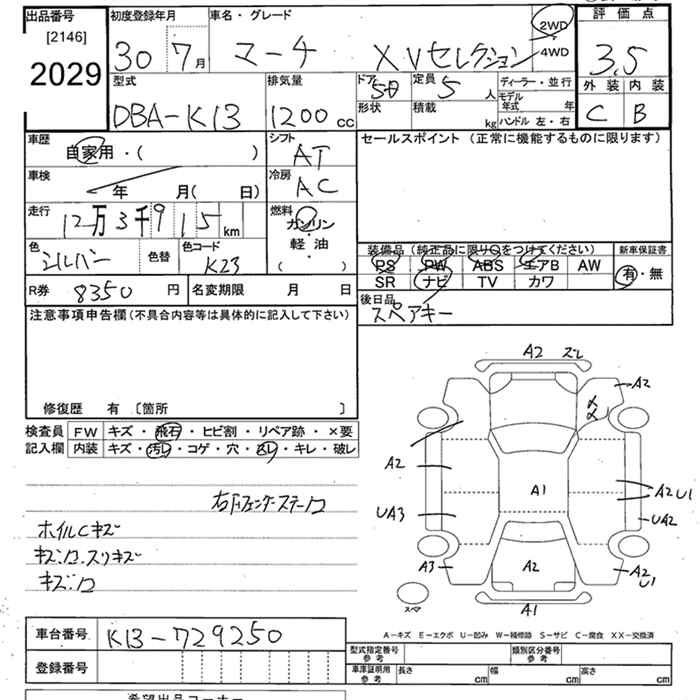 出品番号
[2146]
2029
初度登録年月
30 7月
車名・グレード
マーチ XVセレクション
2WD
4WD
評価点
3,5
外装 内装
C B
型式
DBA-K13
排気量
1200cc
ドア
5
形状
定員
5人
積載
kg
ディーラー・並行
モデル年式 年
ハンドル 左・右
車歴
自家用・( )
シフト
AT
車検
年 月( 日)
冷房
AC
走行
12万3千915km
燃料
ガソリン・軽油
( )
色
シルバー
色替
色コード
K23
R券 8350円
名変期限 月 日
セールスポイント (正常に機能するものに限ります)
装備品(純正品に限り○をつけてください)
新車保証書
PS PW ABS エアB AW
SR ナビ TV カワ
有・無
後日品
スペアキー
注意事項申告欄(不具合内容等は具体的に記入して下さい)
修復歴 有 〔箇所 〕
検査員記入欄
FW キズ・飛石・ヒビ割・リペア跡・×要
内装 キズ・汚レ・コゲ・穴・スレ・キレ・破レ
ホイルCキズ
A2 ズレ
A2
A2
A1
A2 U1
UA3
UA2
A3
A2
A2
U1
A1
スペア
A-キズ E-エクボ U-凹み W-補修跡 S-サビ C-腐食 XX-交換済
車台番号 K13-729250
登録番号
型式指定番号 参考
類別区分番号 参考
車庫証明用 参考
長さ cm 幅 cm 高さ cm
希望出品コーナー